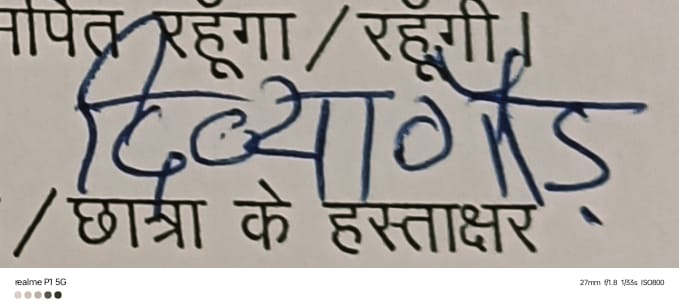 र्पित रहूँगा / रहूँगी।
दिव्या गौड़
/ छात्रा के हस्ताक्षर
realme P1 5G
27mm f/1.8 1/33s ISO800